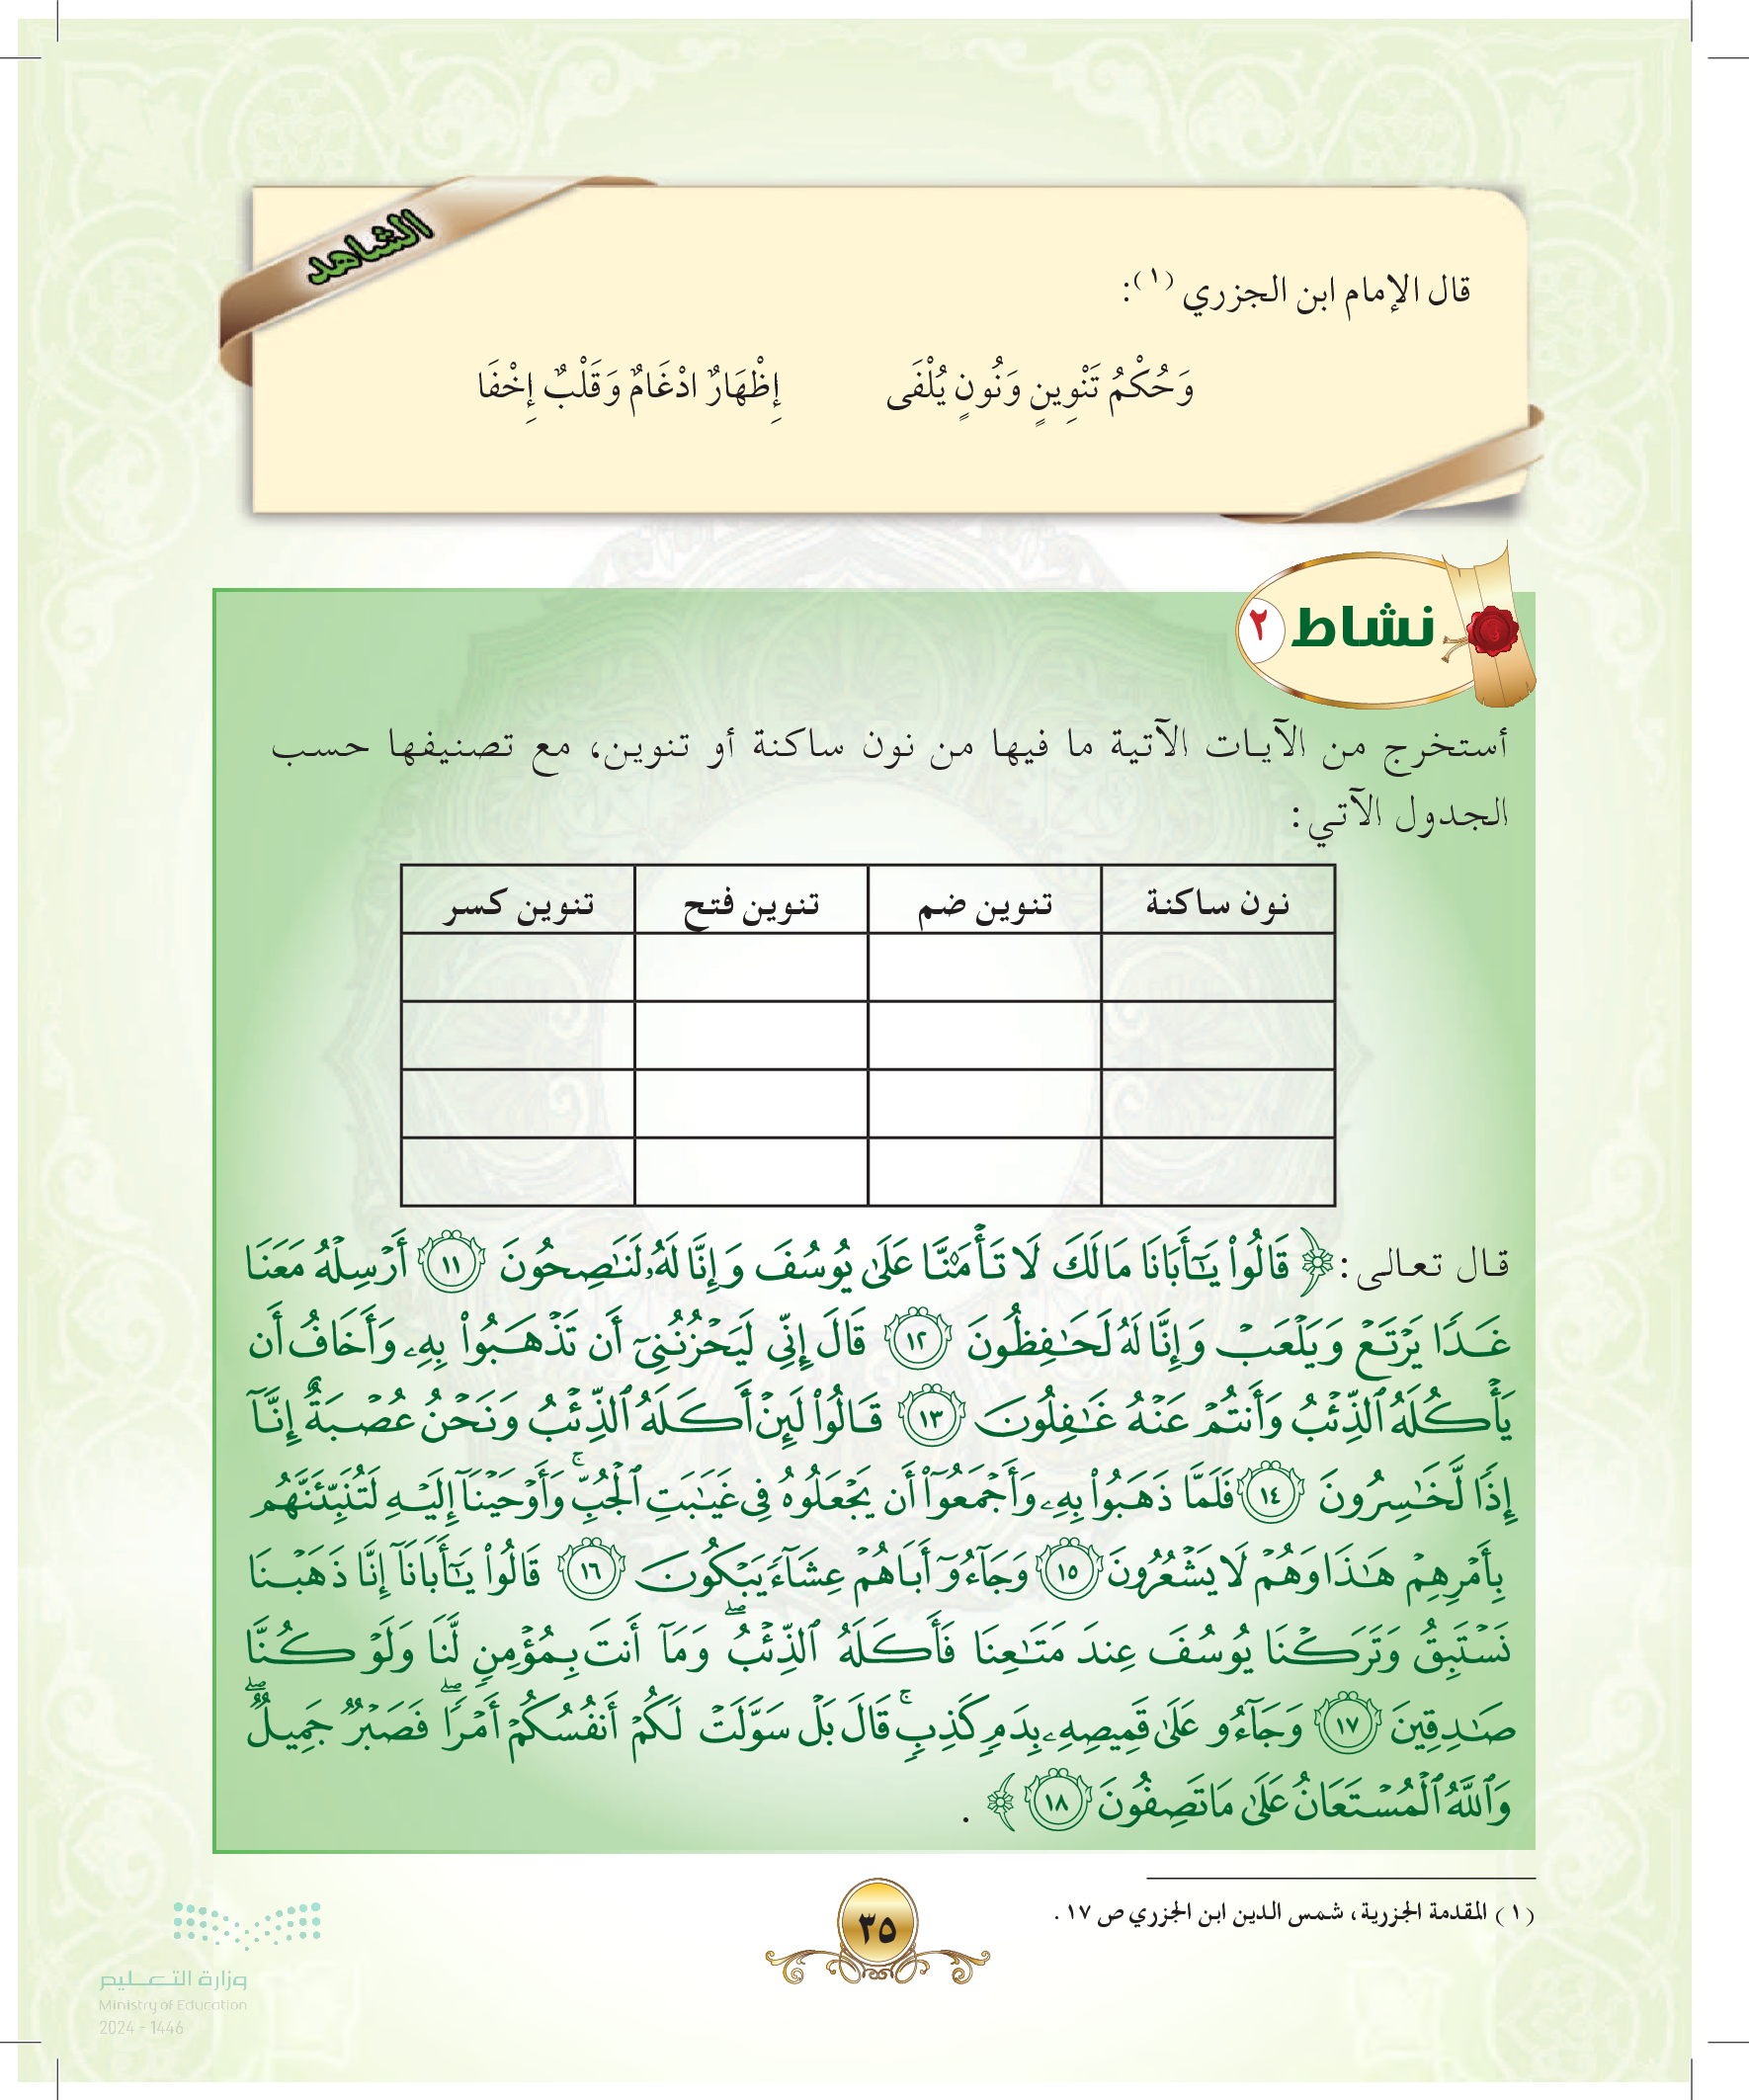 الشاهد
قال الإمام ابن الجزري (١):
وَحُكْمُ تَنْوِينٍ وَنُونٍ يُلْفَى إِظْهَارٌ ادْغَامٌ وَقَلْبٌ إِخْفَا
نشاط ٢
أستخرج من الآيـات الآتية ما فيها من نون ساكنة أو تنوين، مع تصنيفها حسب
الجدول الآتي:
نون ساكنة تنوين ضم تنوين فتح تنوين كسر
قال تعالى: ﴿ قَالُواْ يَـٰٓأَبَانَا مَالَكَ لَا تَأۡمَ۬نَّا عَلَىٰ يُوسُفَ وَإِنَّا لَهُۥ لَنَـٰصِحُونَ ١١ أَرۡسِلۡهُ مَعَنَا
غَدٗا يَرۡتَعۡ وَيَلۡعَبۡ وَإِنَّا لَهُۥ لَحَـٰفِظُونَ ١٢ قَالَ إِنِّي لَيَحۡزُنُنِيٓ أَن تَذۡهَبُواْ بِهِۦ وَأَخَافُ أَن
يَأۡكُلَهُ ٱلذِّئۡبُ وَأَنتُمۡ عَنۡهُ غَـٰفِلُونَ ١٣ قَالُواْ لَئِنۡ أَكَلَهُ ٱلذِّئۡبُ وَنَحۡنُ عُصۡبَةٌ إِنَّآ
إِذٗا لَّخَـٰسِرُونَ ١٤ فَلَمَّا ذَهَبُواْ بِهِۦ وَأَجۡمَعُوٓاْ أَن يَجۡعَلُوهُ فِي غَيَـٰبَتِ ٱلۡجُبِّۚ وَأَوۡحَيۡنَآ إِلَيۡهِ لَتُنَبِّئَنَّهُم
بِأَمۡرِهِمۡ هَـٰذَا وَهُمۡ لَا يَشۡعُرُونَ ١٥ وَجَآءُوٓ أَبَاهُمۡ عِشَآءٗ يَبۡكُونَ ١٦ قَالُواْ يَـٰٓأَبَانَآ إِنَّا ذَهَبۡنَا
نَسۡتَبِقُ وَتَرَكۡنَا يُوسُفَ عِندَ مَتَـٰعِنَا فَأَكَلَهُ ٱلذِّئۡبُۖ وَمَآ أَنتَ بِمُؤۡمِنٖ لَّنَا وَلَوۡ كُنَّا
صَـٰدِقِينَ ١٧ وَجَآءُو عَلَىٰ قَمِيصِهِۦ بِدَمٖ كَذِبٖۚ قَالَ بَلۡ سَوَّلَتۡ لَكُمۡ أَنفُسُكُمۡ أَمۡرٗاۖ فَصَبۡرٞ جَمِيلٞۖ
وَٱللَّهُ ٱلۡمُسۡتَعَانُ عَلَىٰ مَا تَصِفُونَ ١٨ ﴾ .
(١) المقدمة الجزرية، شمس الدين ابن الجزري ص ١٧ .
٣٥
وزارة التعـليم
Ministry of Education
2024 - 1446